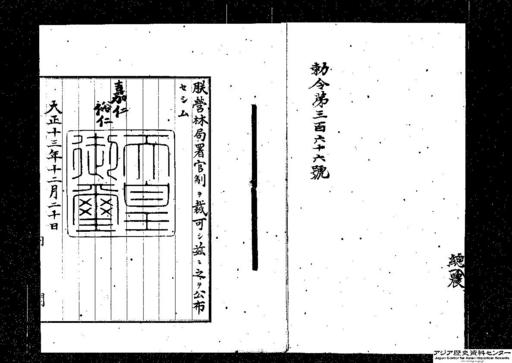 勅令第三百六十六號
總農
朕營林局署官制ヲ裁可シ茲ニ之ヲ公布
セシム
嘉仁
裕仁
天皇
御璽
大正十三年十二月二十日
アジア歴史資料センター
Japan Center for Asian Historical Records